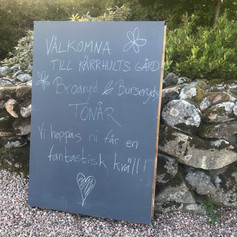 VÄLKOMNA
TILL KÄRRHULTS GÅRD
Broaryd & Burseryds
TONÅR
Vi hoppas ni får en
fantastisk kväll!